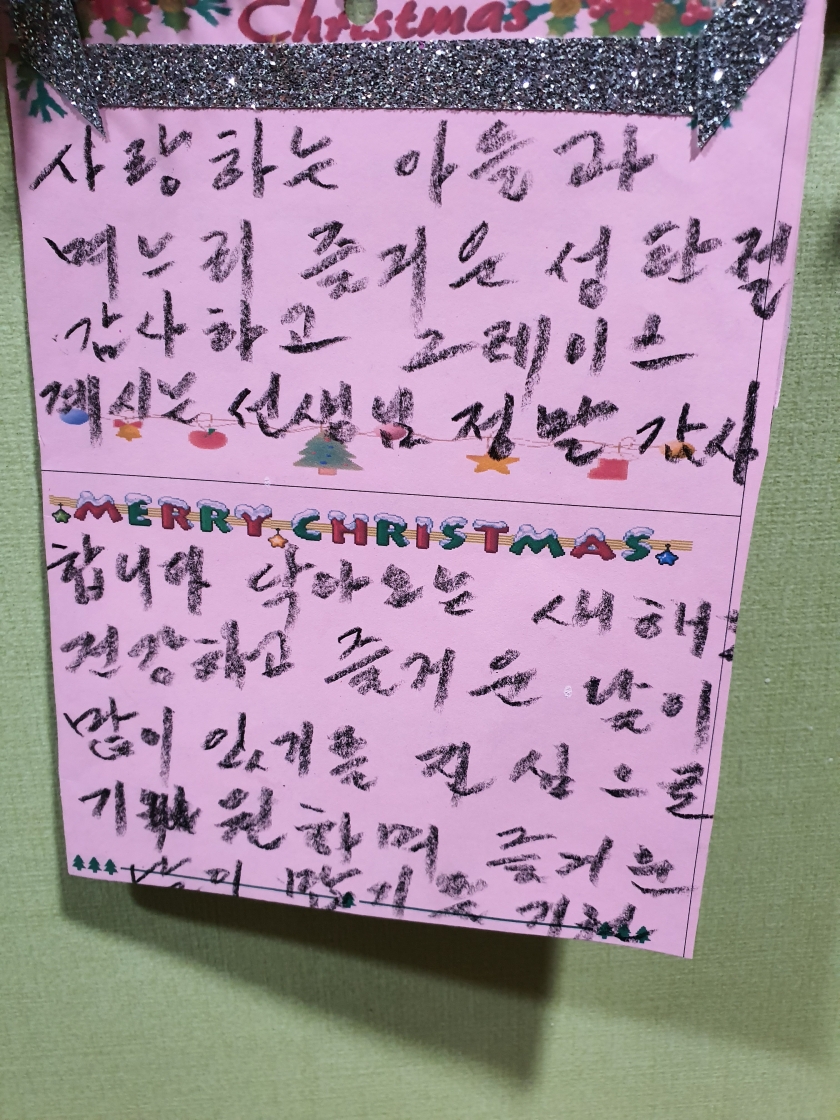 Christmas
사랑하는 아들과
며느리 즐거운 성탄절
감사하고 그레이스
계시는 선생님 정말 감사
MERRY CHRISTMAS
합니다 닥아오는 새해
건강하고 즐거운 날이
많이 있기를 진심으로
기 원하며 즐거운
날이 많기를 기원